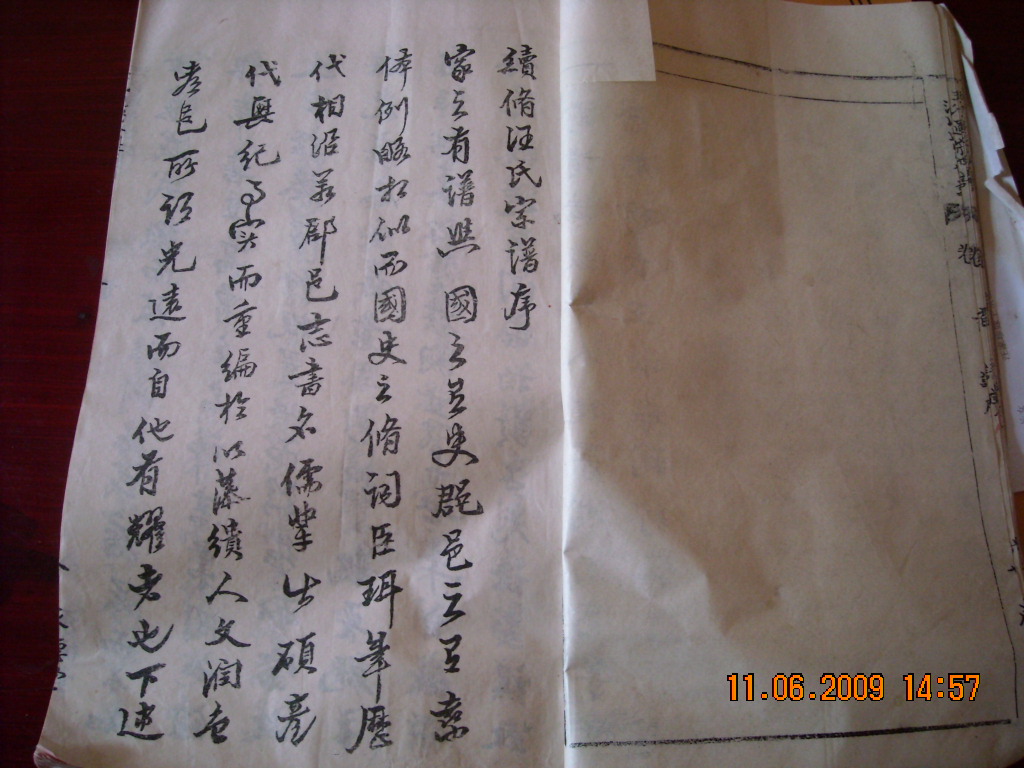 續脩汪氏宗譜序
家之有譜與國之有史郡邑之有志
体例略相似而國史之脩詞臣珥筆歷
代相沿若郡邑志書名儒輩出碩彥
代興紀事實而重編於以藻繢人文潤色
嵓邑所詔光遠而自他有耀者也下逮
11.06.2009 14:57